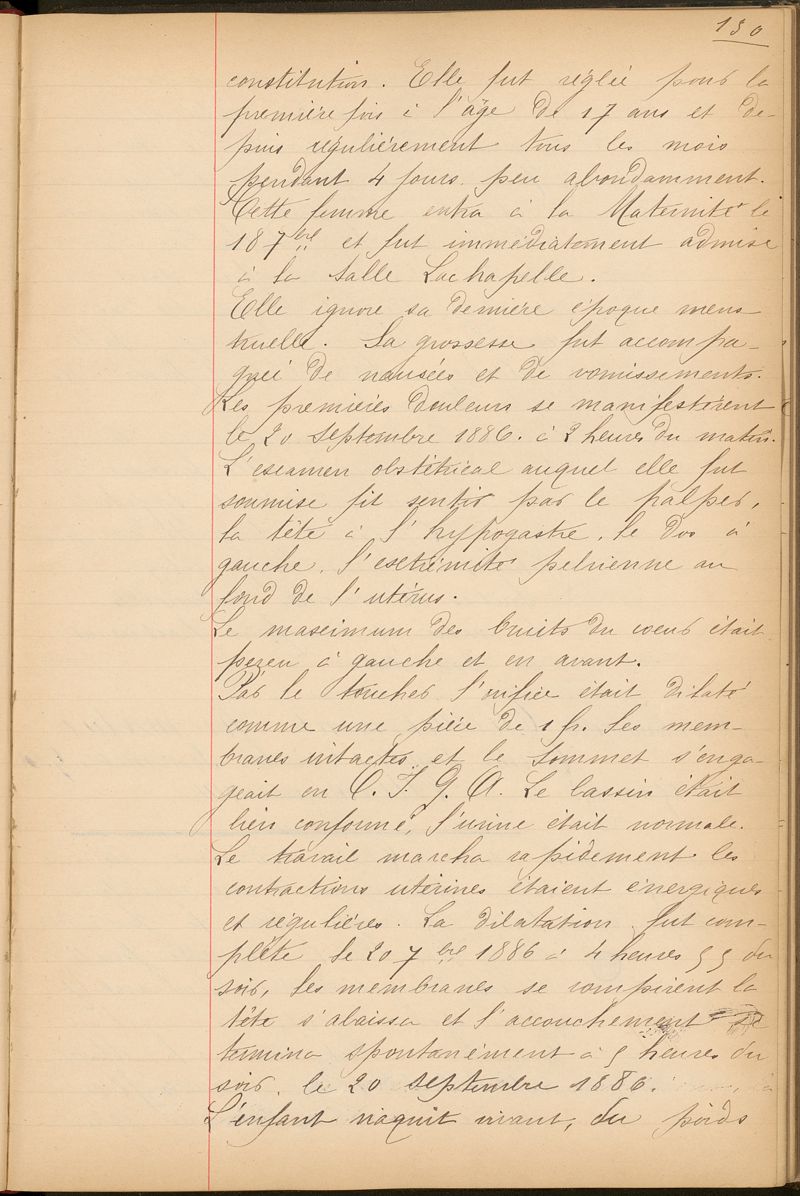 130
constitution. Elle fut réglée pour la
première fois à l'âge de 17 ans et de-
puis régulièrement tous les mois
pendant 4 jours peu abondamment.
Cette femme entra à la Maternité le
18 7bre et fut immédiatement admise
à la salle Lachapelle.
Elle ignore sa dernière époque mens
truelle. Sa grossesse fut accompa-
gnée de nausées et de vomissements.
Les premières douleurs se manifestèrent
le 20 septembre 1886. à 2 heures du matin.
L'examen obstétrical auquel elle fut
soumise fit sentir par le palper,
la tête à l'hypogastre, le dos à
gauche, l'extrémité pelvienne au
fond de l'utérus.
Le maximum des bruits du cœur était
perçu à gauche et en avant.
Par le toucher l'orifice était dilaté
comme une pièce de 1 fr. les mem-
branes intactes et le sommet s'enga-
geait en O. I. G. A. Le bassin était
bien conformé, l'urine était normale.
Le travail marcha rapidement les
contractions utérines étaient énergiques
et régulières. La dilatation fut com-
plète le 20 7bre 1886 à 4 heures 55 du
soir, les membranes se rompirent la
tête s'abaissa et l'accouchement se
termina spontanément à 5 heures du
soir. le 20 septembre 1886.
L'enfant naquit vivant, du poids